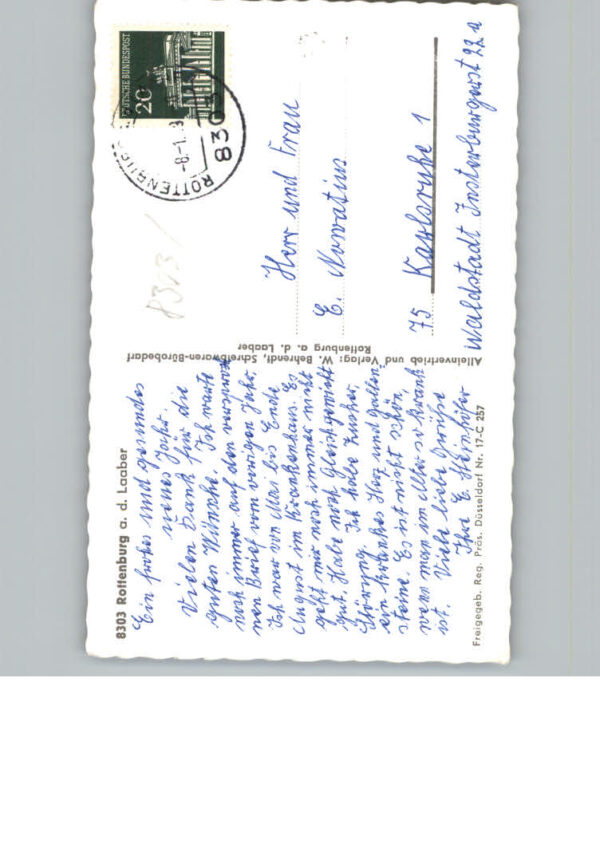 8303 Rottenburg a. d. Laaber
Ein frohes und gesundes
neues Jahr.
Vielen Dank für die
guten Wünsche. Ich warte
noch immer auf den versproch
nen Brief vom vorigen Jahr.
Ich war von Mai bis Ende
August im Krankenhaus. Es
geht mir noch immer nicht
gut. Habe noch Gleichgewicht
Störung. Ich habe Zucker,
ein krankes Herz und Gallen-
steine. Es ist nicht schön,
wenn man im Alter so krank
ist. Viele liebe Grüße
Ihre E. Steinhöfer
Freigegeb. Reg. Präs. Düsseldorf Nr. 17-C 257
Alleinvertrieb und Verlag: W. Behrendt, Schreibwaren-Bürobedarf
Rottenburg a. d. Laaber
DEUTSCHE BUNDESPOST
20
8303
ROTTENBURG
-8.-1.
8303
Herr und Frau
E. Nowatius
75 Karlsruhe 1
Waldstadt Insterburgerst 22a